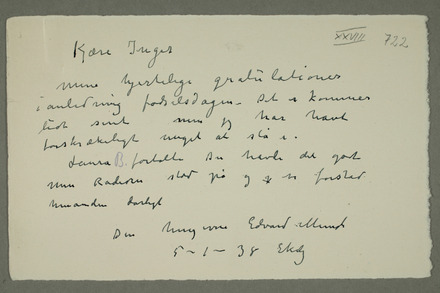 XXVIII 722
Kære Inger
mine hjertelige gratulationer
i anledning fødselsdagen. Det kommer
lidt sent men jeg har havt
forskrækkeligt meget at stå i.
Laura B. fortalte Du havde det godt
men Radioen stod på og vi forstod
hinanden dårligt
Din hengivne Edvard Munch
5-1-38 Ekely